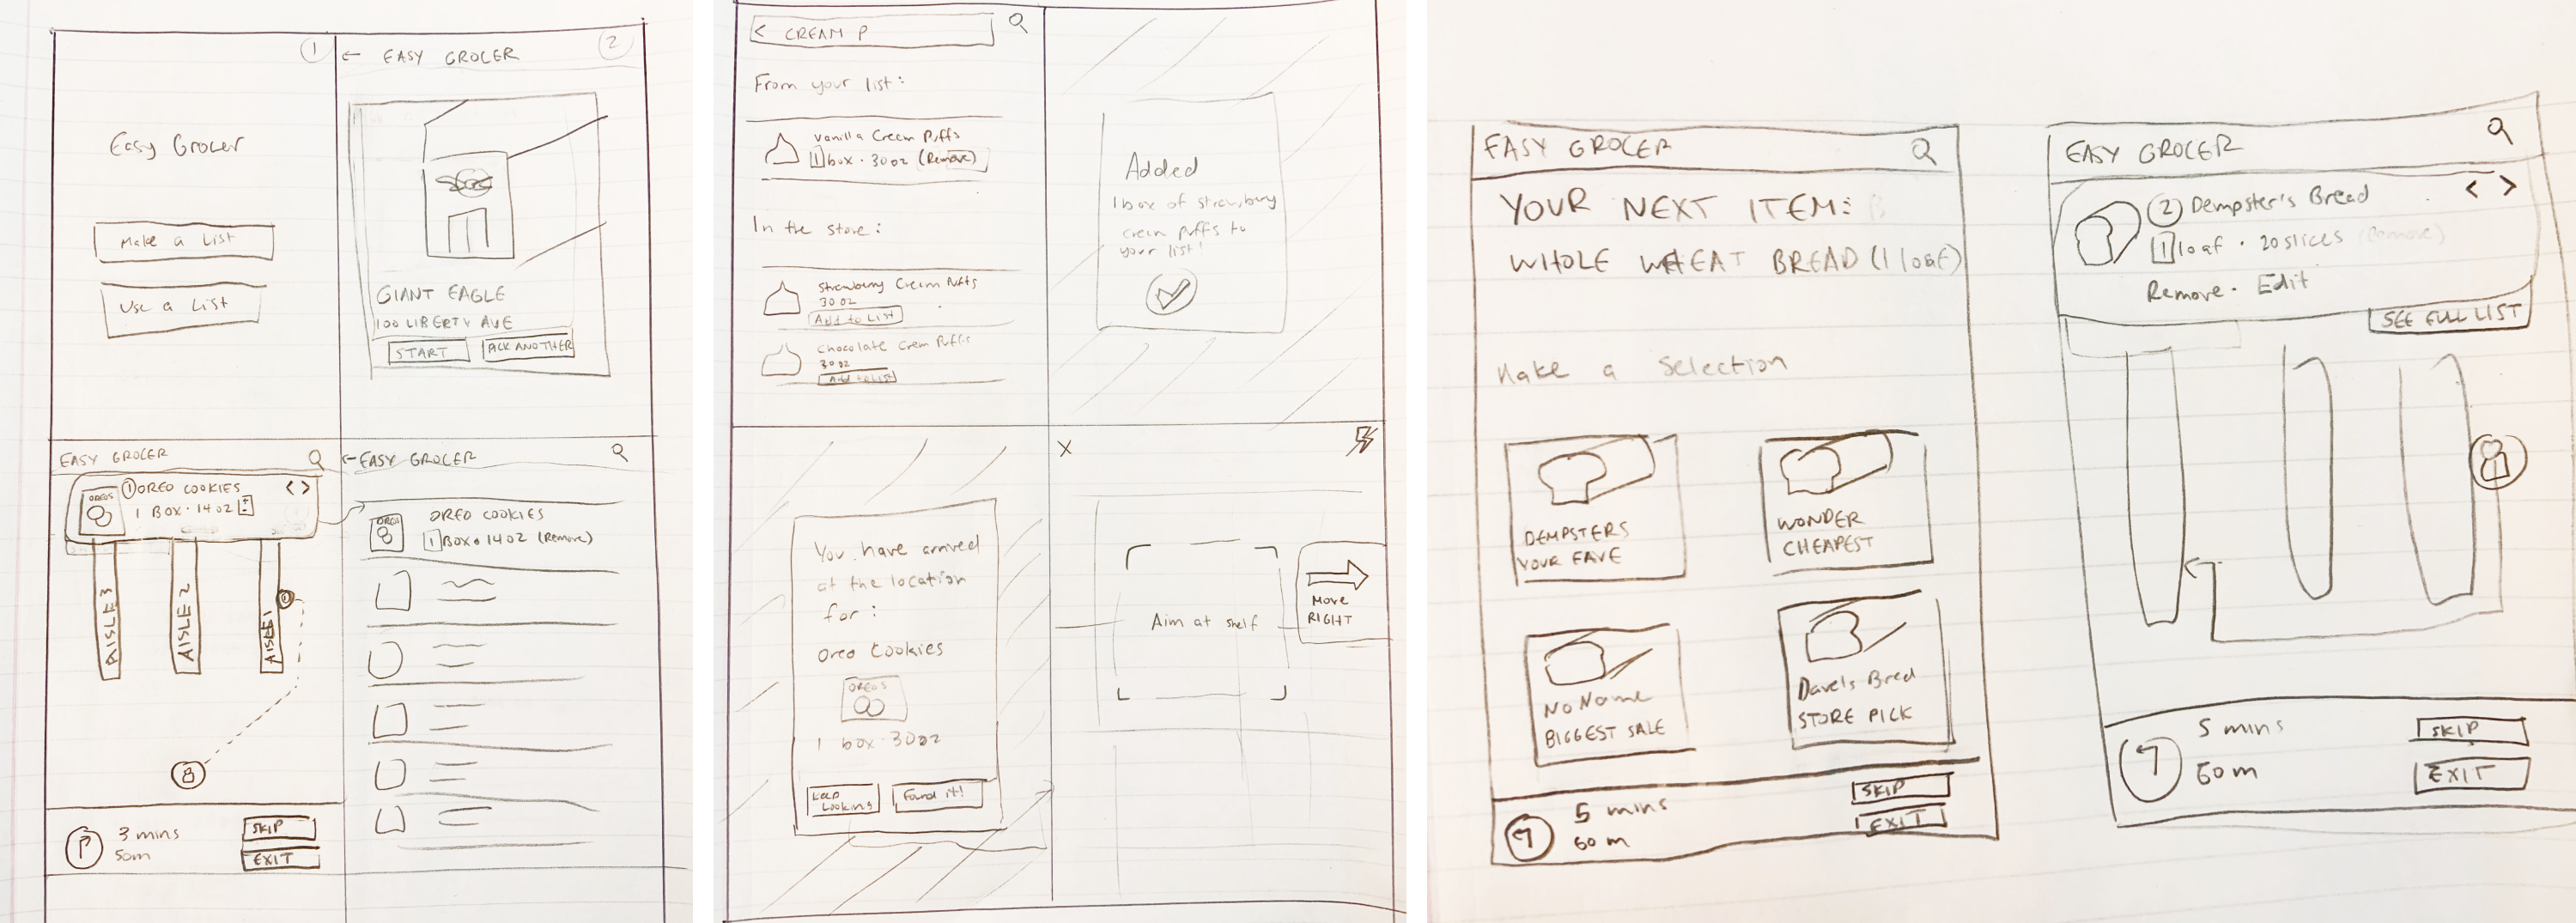 1
Easy Grocer
Make a List
Use a List
← EASY GROCER
2
GIANT EAGLE
100 LIBERTY AVE
START
PICK ANOTHER
EASY GROCER
OREOS
1 OREO COOKIES < >
1 BOX · 14 OZ
AISLE 3
AISLE 2
AISLE 1
3 mins
50m
SKIP
EXIT
← EASY GROCER
OREOS
OREO COOKIES
1 BOX · 14 OZ (Remove)
< CREAM P
From your list:
Vanilla Cream Puffs
1 box · 30 oz (Remove)
In the store:
Strawberry Cream Puffs
30 oz
Add to List
Chocolate Cream Puffs
30 oz
Add to List
Added
1 box of strawberry
cream puffs to
your list!
You have arrived
at the location
for:
Oreo Cookies
OREOS
1 box · 30 oz
Keep
Looking
Found it!
X
Aim at shelf
Move
RIGHT
EASY GROCER
YOUR NEXT ITEM:
WHOLE WHEAT BREAD (1 loaf)
Make a Selection
DEMPSTERS
YOUR FAVE
WONDER
CHEAPEST
No Name
BIGGEST SALE
Dave's Bread
STORE PICK
5 mins
60 m
SKIP
EXIT
EASY GROCER
2 Dempster's Bread < >
1 loaf · 20 slices (Remove)
Remove · Edit
SEE FULL LIST
5 mins
60 m
SKIP
EXIT